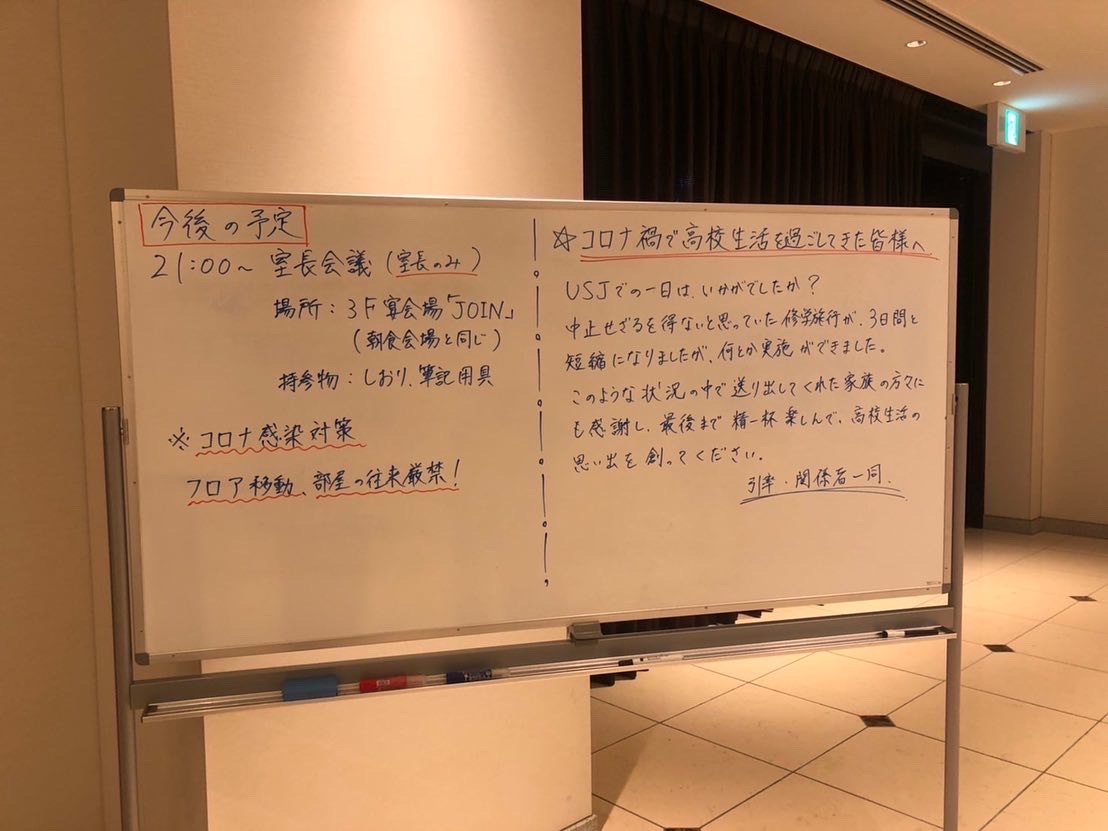 今後の予定
21:00~ 室長会議(室長のみ)
場所:3F宴会場「JOIN」
(朝食会場と同じ)
持参物:しおり、筆記用具
※コロナ感染対策
フロア移動、部屋の往来厳禁!
☆コロナ禍で高校生活を過ごしてきた皆様へ
USJでの一日は、いかがでしたか?
中止せざるを得ないと思っていた修学旅行が、3日間と
短縮になりましたが、何とか実施ができました。
このような状況の中で送り出してくれた家族の方々に
も感謝し、最後まで精一杯楽しんで、高校生活の
思い出を創ってください。
引率・関係者一同.